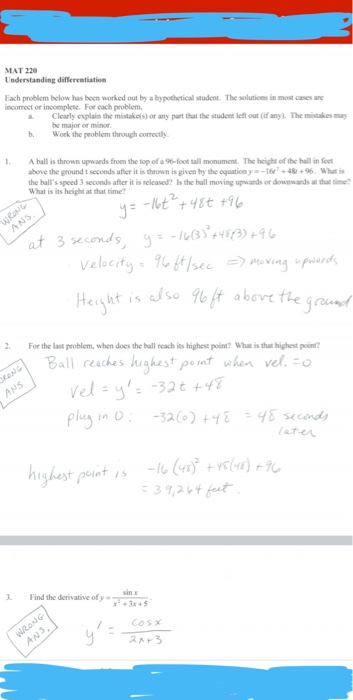 MAT 220
Understanding differentiation
Each problem below has been worked out by a hypothetical student. The solutions in most cases are
incorrect or incomplete. For each problem,
a. Clearly explain the mistake(s) or any part that the student left out (if any). The mistakes may
be major or minor.
b. Work the problem through correctly.
1. A ball is thrown upwards from the top of a 96-foot tall monument. The height of the ball in feet
above the ground t seconds after it is thrown is given by the equation y = -16t² + 48t + 96. What is
the ball's speed 3 seconds after it is released? Is the ball moving upwards or downwards at that time?
What is its height at that time?
WRONG ANS.
y = -16t² + 48t + 96
at 3 seconds, y = -16(3)² + 48(3) + 96
velocity = 96 ft/sec => moving upwards
Height is also 96 ft above the ground
2. For the last problem, when does the ball reach its highest point? What is that highest point?
WRONG ANS.
Ball reaches highest point when vel. = 0
vel = y' = -32t + 48
plug in 0: -32(0) + 48 = 48 seconds
later
highest point is -16(48)² + 48(48) + 96
= 39,264 feet.
3. Find the derivative of y = sin x / x² + 3x + 5.
WRONG ANS.
y' = cos x / 2x + 3